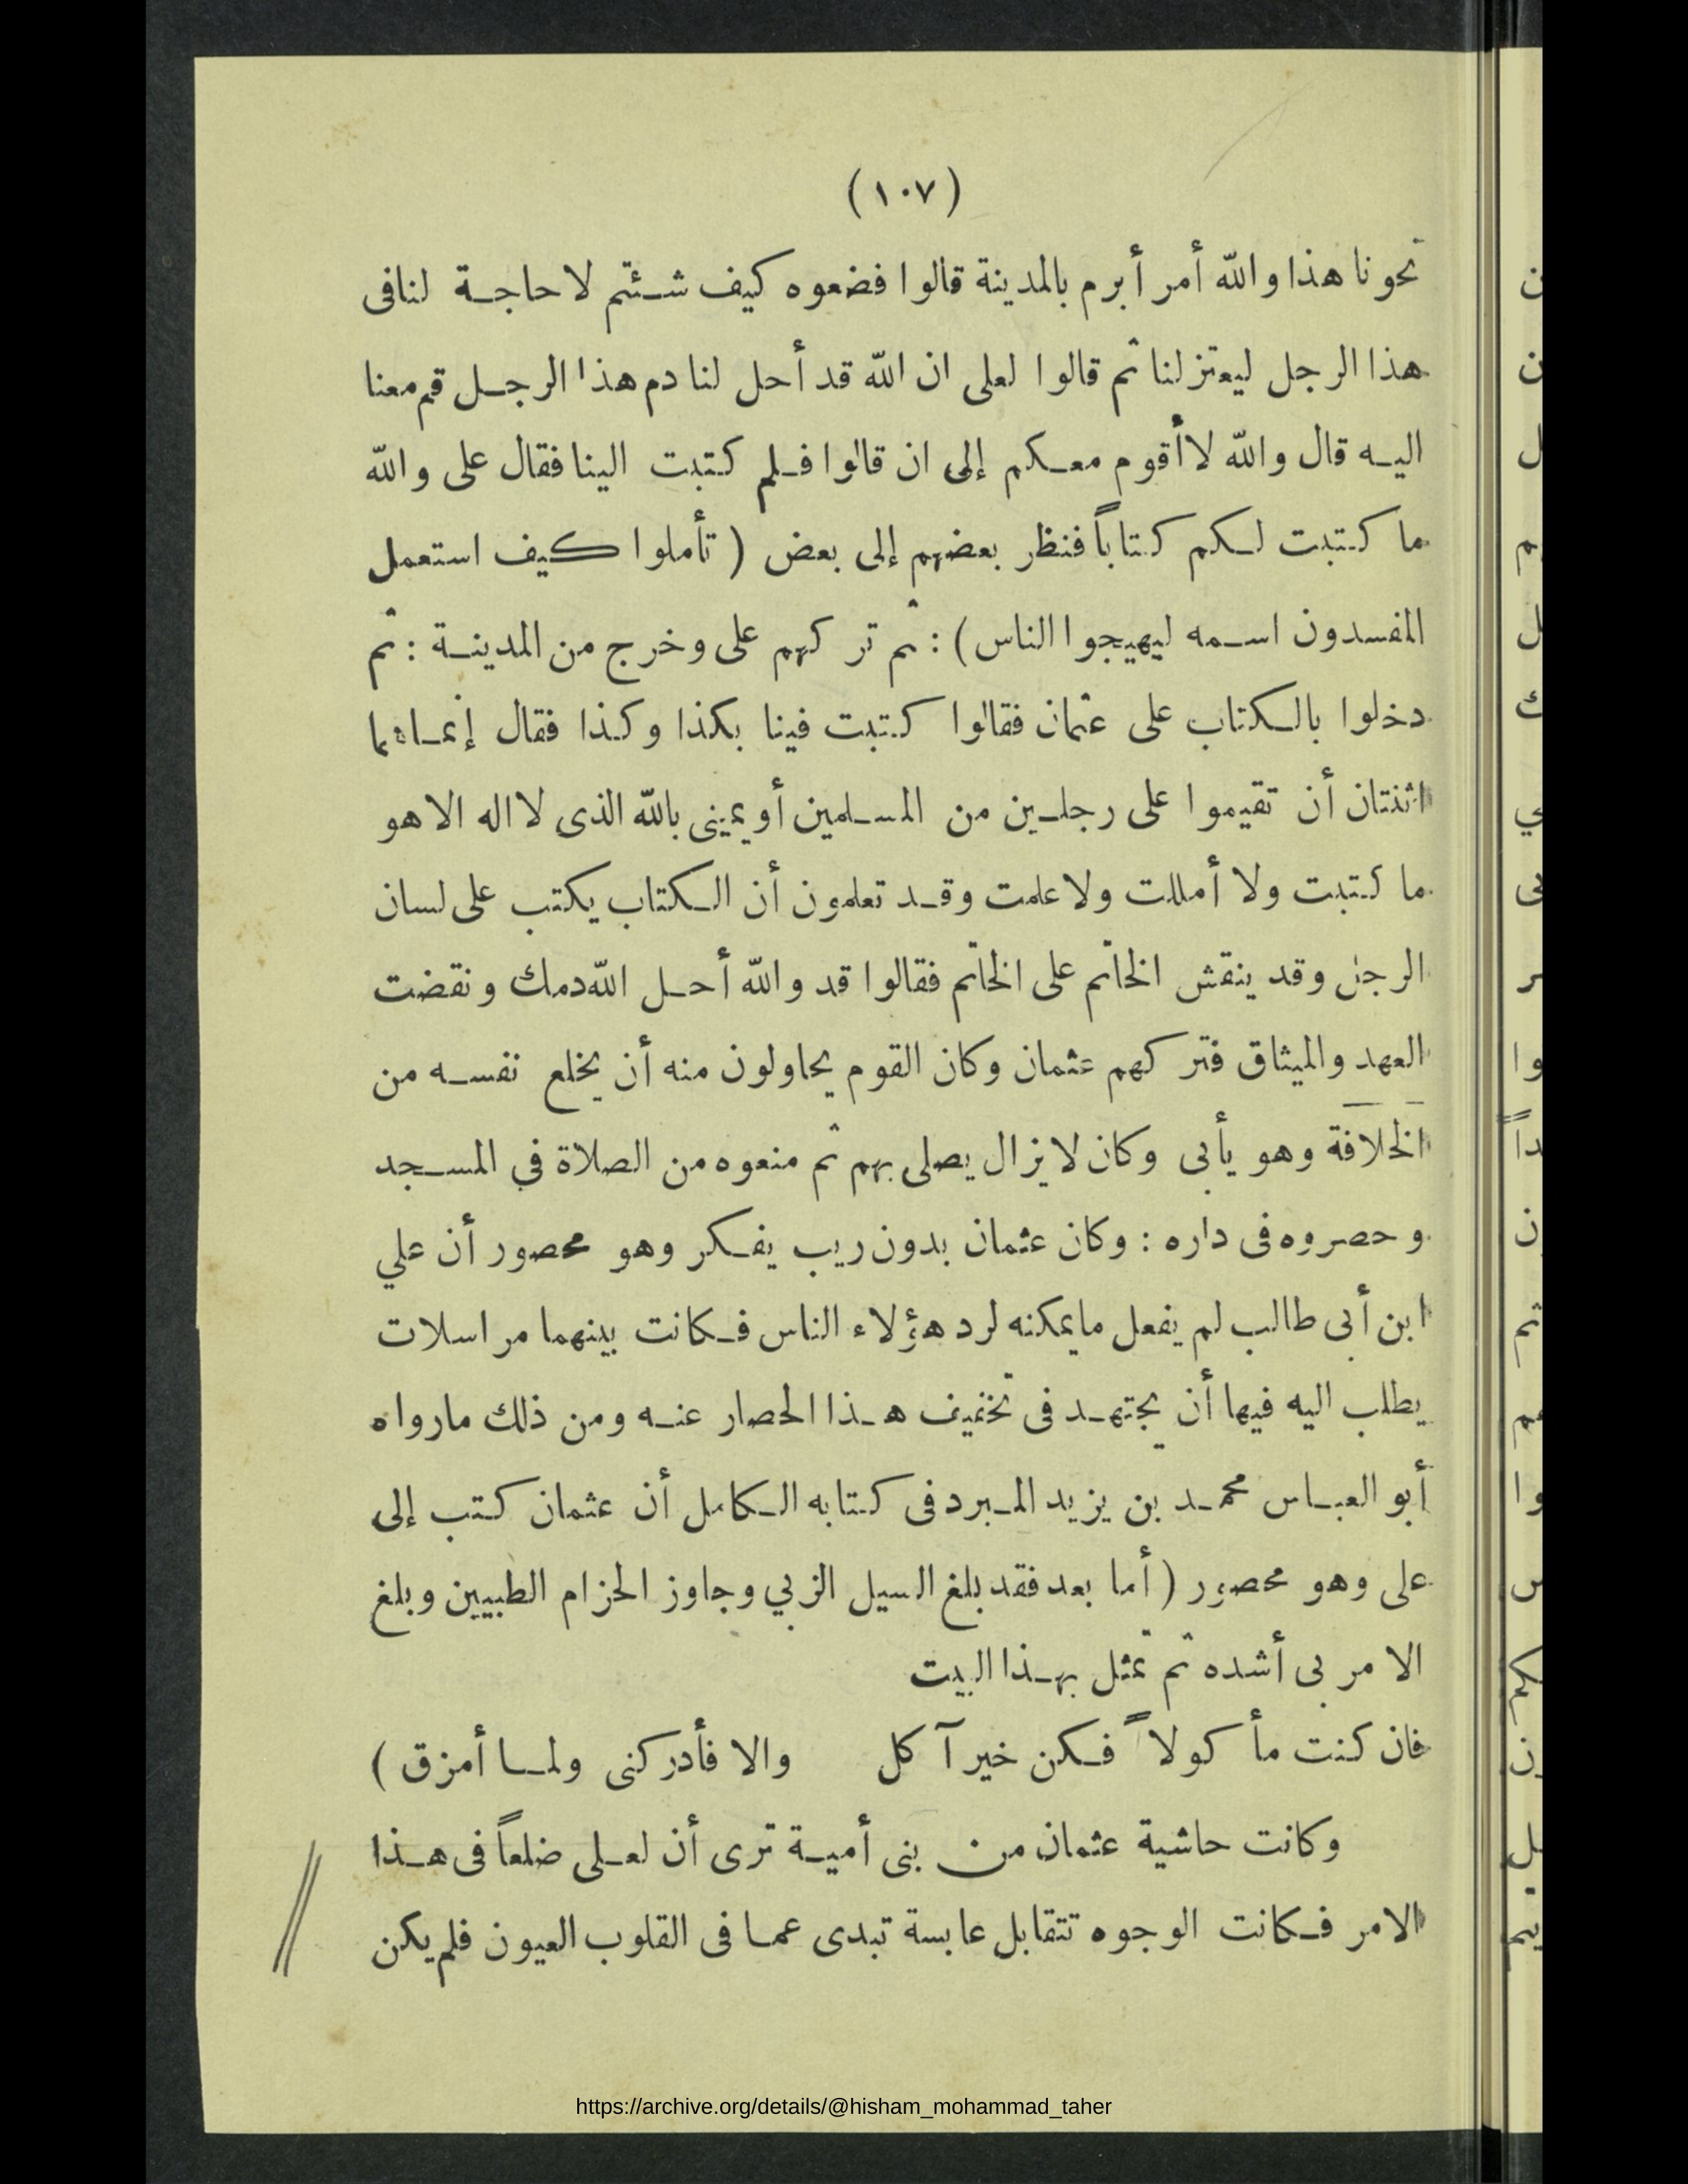 (١٠٧)
نحونا هذا والله أمر أبرم بالمدينة قالوا فضعوه كيف شئتم لا حاجة لنا فى
هذا الرجل ليعتزلنا ثم قالوا لعلى ان الله قد أحل لنا دم هذا الرجل قم معنا
اليه قال والله لا أقوم معكم إلى ان قالوا فلم كتبت الينا فقال على والله
ما كتبت لكم كتاباً فنظر بعضهم إلى بعض ( تأملوا كيف استعمل
المفسدون اسمه ليهيجوا الناس ) : ثم تركهم على وخرج من المدينة : ثم
دخلوا بالكتاب على عثمان فقالوا كتبت فينا بكذا وكذا فقال إنما هما
اثنتان أن تقيموا على رجلين من المسلمين أو يمينى بالله الذى لا اله الا هو
ما كتبت ولا أمللت ولا علمت وقد تعلمون أن الكتاب يكتب على لسان
الرجل وقد ينقش الخاتم على الخاتم فقالوا قد والله أحل الله دمك ونقضت
العهد والميثاق فتركهم عثمان وكان القوم يحاولون منه أن يخلع نفسه من
الخلافة وهو يأبى وكان لا يزال يصلى بهم ثم منعوه من الصلاة في المسجد
وحصروه فى داره : وكان عثمان بدون ريب يفكر وهو محصور أن علي
ابن أبى طالب لم يفعل ما يمكنه لرد هؤلاء الناس فكانت بينهما مراسلات
يطلب اليه فيها أن يجتهد فى تخفيف هذا الحصار عنه ومن ذلك مارواه
أبو العباس محمد بن يزيد المبرد فى كتابه الكامل أن عثمان كتب إلى
على وهو محصور ( أما بعد فقد بلغ السيل الزبي وجاوز الحزام الطبيين وبلغ
الامر بى أشده ثم تمثل بهذا البيت
فان كنت مأكولاً فكن خير آكل والا فأدركنى ولما أمزق )
وكانت حاشية عثمان من بنى أمية ترى أن لعلى ضلعاً فى هذا
الامر فكانت الوجوه تتقابل عابسة تبدى عما فى القلوب العيون فلم يكن
https://archive.org/details/@hisham_mohammad_taher